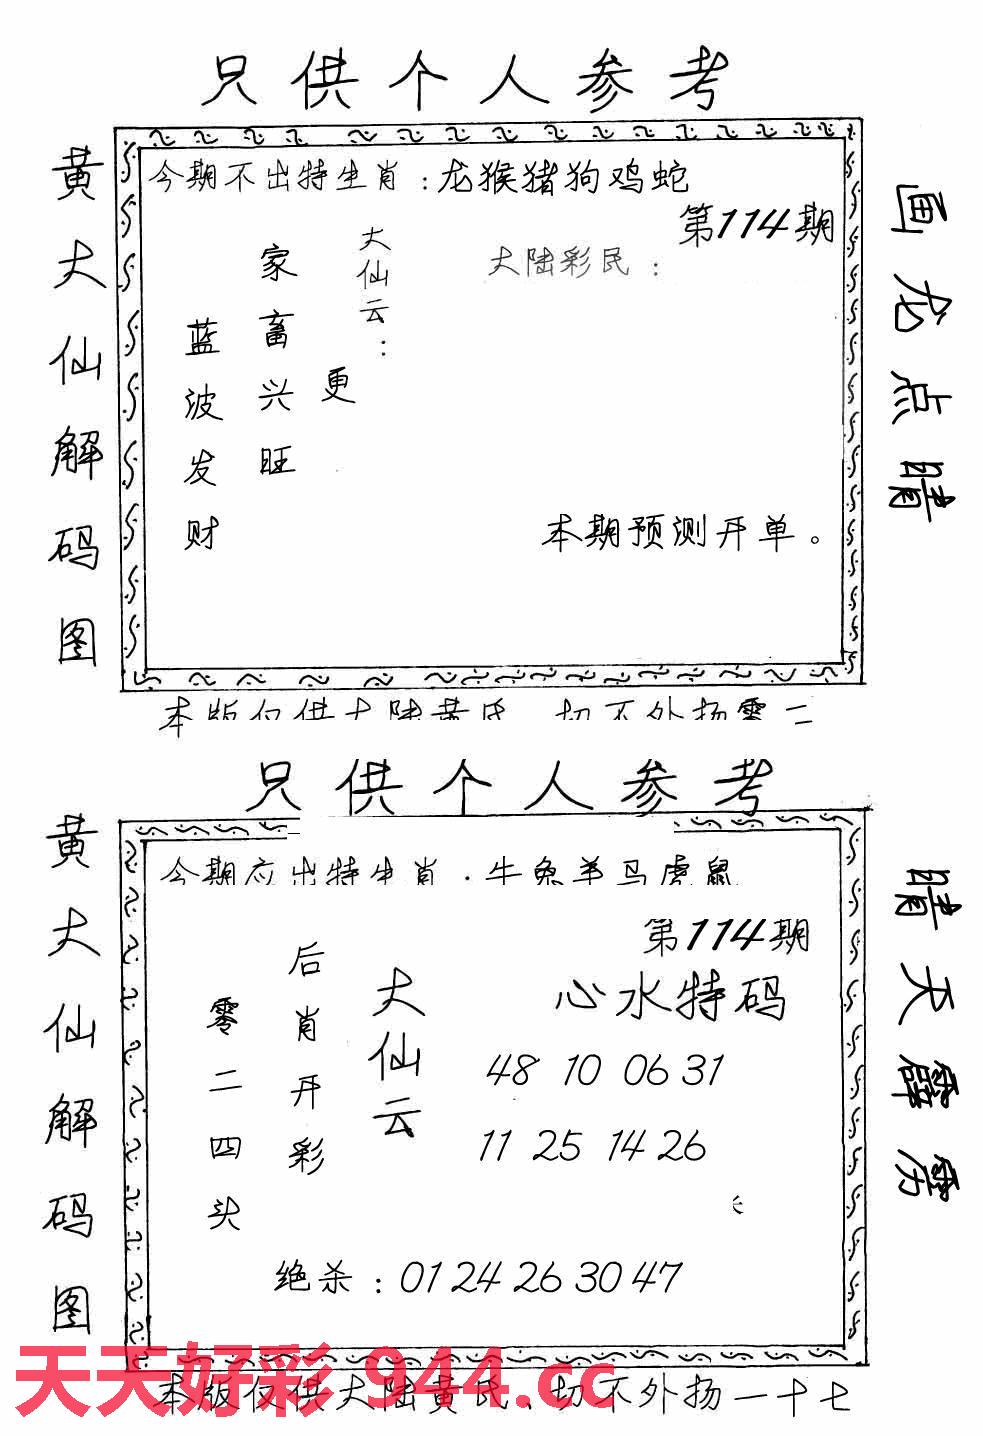 只供个人参考
黄大仙解码图
今期不出特生肖:龙猴猪狗鸡蛇
第114期
大陆彩民:
大仙云:
更
家畜兴旺
蓝波发财
本期预测开单。
画龙点晴
本版仅供大陆黄氏、切不外扬零二
只供个人参考
黄大仙解码图
今期应出特生肖:牛兔羊马虎鼠
第114期
心水特码
48 10 06 31
11 25 14 26
大仙云
后肖开彩
零二四头
绝杀:01 24 26 30 47
晴天霹雳
天天好彩 944.cc
本版仅供大陆黄氏、切不外扬一十七